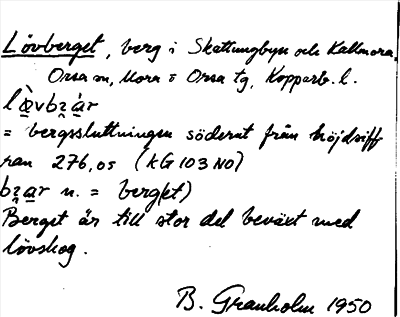 Lövberget, berg i Skattungbyn och Kallmora,
Orsa sn, Mora o Orsa tg, Kopparb. l.
= bergssluttningen söderut från höjdsiff
ran 276,05 (KG 103 NO)
n. = berg(et)
Berget är till stor del beväxt med
lövskog.
B. Granholm 1950